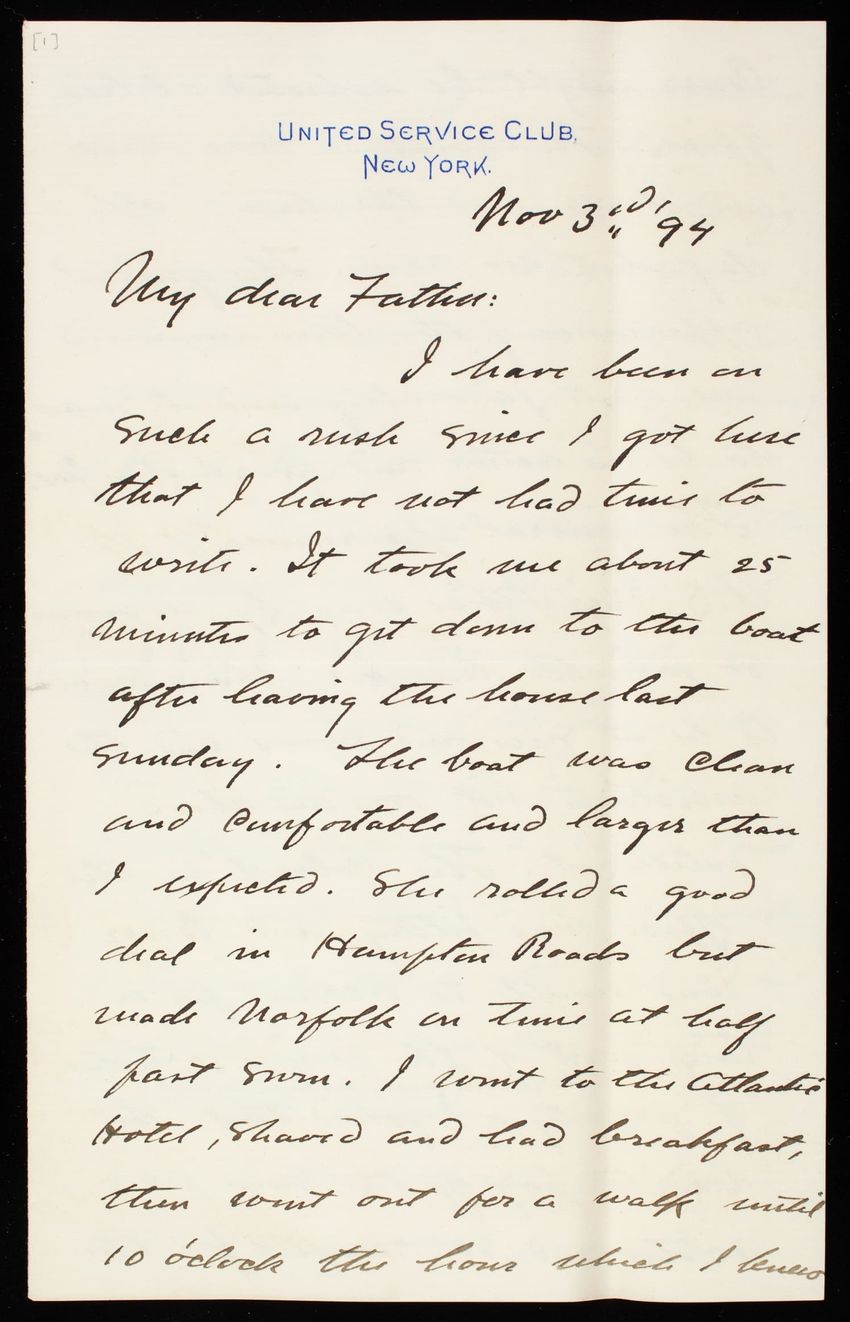 [1]
UNITED SERVICE CLUB,
NEW YORK.
Nov 3rd '94
My dear Father:
I have been on
such a rush since I got here
that I have not had time to
write. It took me about 25
minutes to get down to the boat
after leaving the house last
Sunday. The boat was clean
and comfortable and larger than
I expected. She rolled a good
deal in Hampton Roads but
made Norfolk on time at half
past seven. I went to the Atlantic
Hotel, shaved and had breakfast,
then went out for a walk until
10 o'clock the hour which I knew